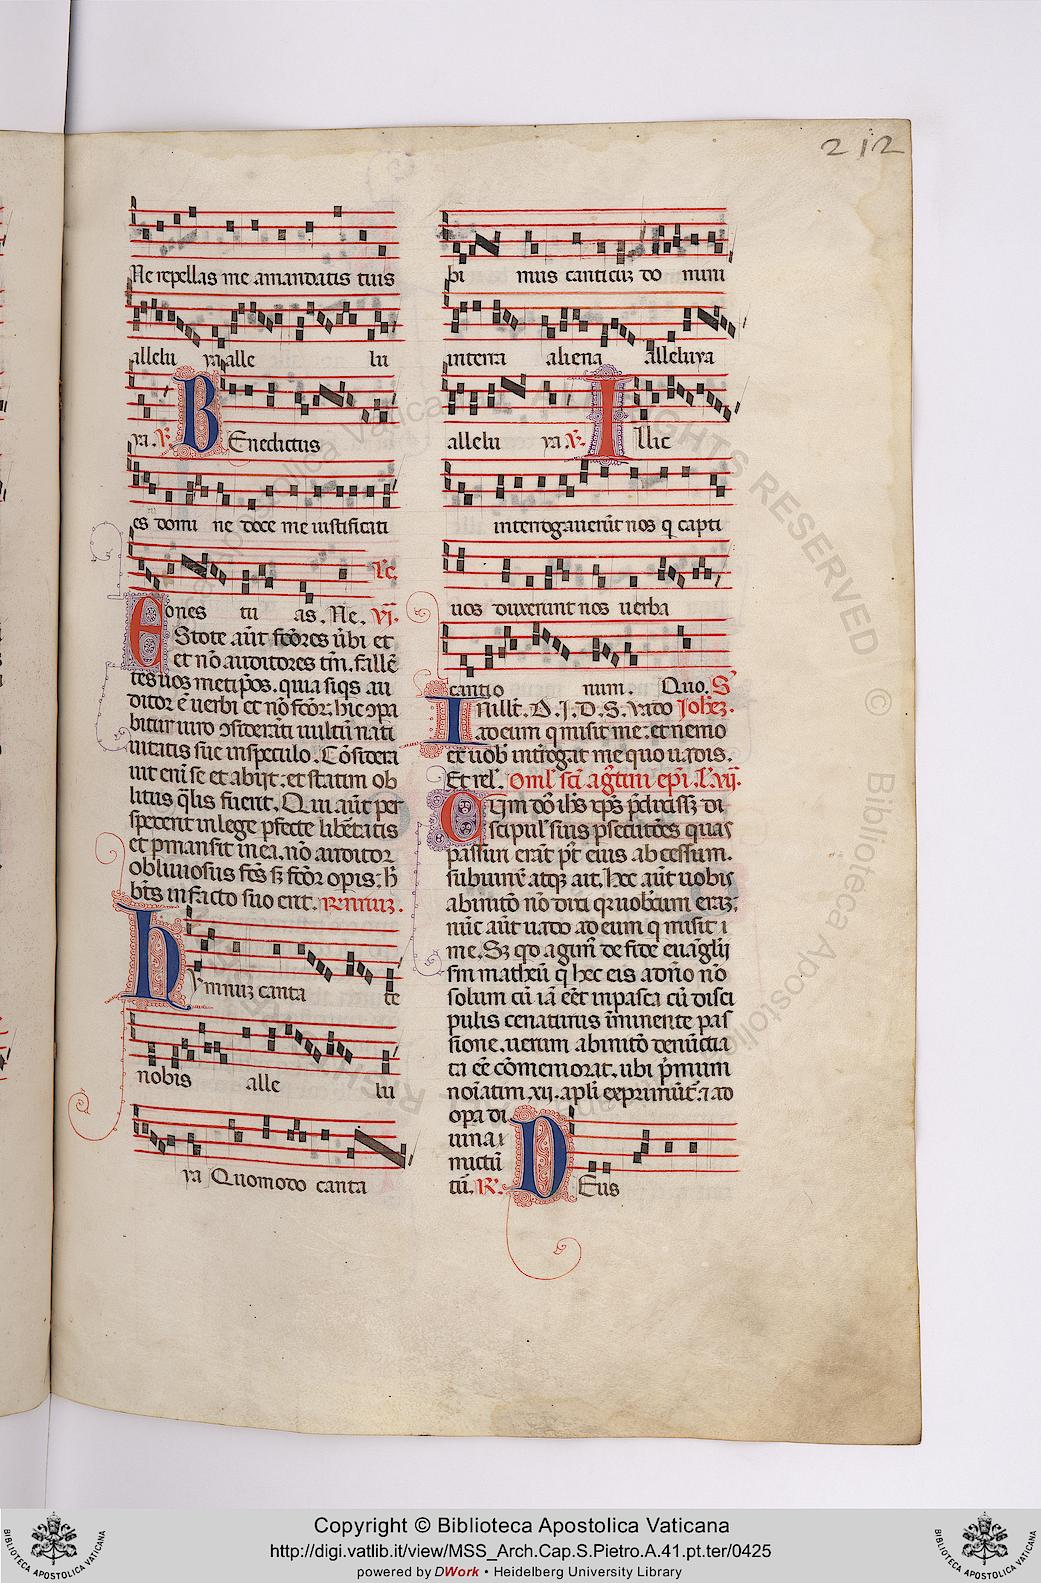 212
Ne repellas me amandatis tuis
allelu ya alle lu
ya. R. Benedictus
es domi ne doce me iustificati
ones tu as. Ne. Vj.
Estote aūt fc̄ores ūbi et
et nō auditores tm̄. fallē
tes uos metip̄os. quia siqs au
ditor ē uerbi et nō fc̄or: hic ɔpa
bitur uiro ɔsiderāti uultū nati
uitatis sue inspeculo. Cōsidera
uit eni se et abijt: et statim ob
litus q̄lis fuerit. Qui aūt per
spexerit inlege pfecte lib̄tatis
et pmanserit in ea. nō auditor
obliuiosus fc̄s s̄ fc̄or opis: h̄
bt̄s in facto suo erit.
Hymnuz canta te
nobis alle lu
ya Quomodo canta
bi mus canticuz do mini
interra aliena alleluya
allelu ya. R. Illic
interrogauerūt nos q capti
uos duxerunt nos uerba
cantio num. Quo. S
In illo t. D. J. D. S. Vado Johēz.
ad eum q misit me: et nemo
ex uob̄ int̄rogat me quo uadis.
Et rel. Oml̄. sc̄i aḡtini ep̄i. L. vij.
Cum dō ih̄s xp̄s p̄dixiss; di
scipul suis psecutōes quas
passuri erāt p̄t eius abcessum.
subiunx̄ atq; ait. hec aūt uobis
abinitō nō dixi q uobcum eraz;
nūc aūt uado ad eum q misit
me. Sz qd agim de fide euāglij
sm matheū q hec eis adn̄o nō
solum cū iā eēt inpasca cū disci
pulis cenaturus īminente pas
sione. uerum abinitō denūctia
ta eē cōmemorat. ubi p̄mum
noīatim .xij. apl̄i exprimūt: ⁊ ad
opa di
uina
mictū
tū. R. Deus
Copyright © Biblioteca Apostolica Vaticana
http://digi.vatlib.it/view/MSS_Arch.Cap.S.Pietro.A.41.pt.ter/0425
powered by DWork • Heidelberg University Library
BIBLIOTECA APOSTOLICA VATICANA
BIBLIOTECA APOSTOLICA VATICANA